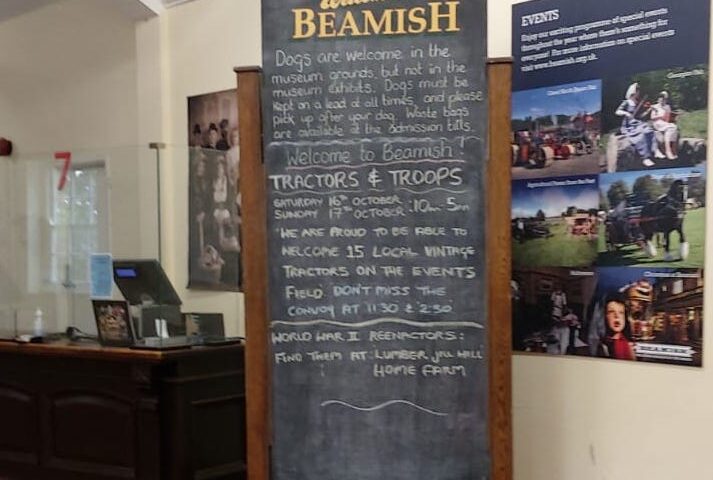 BEAMISH
Dogs are welcome in the
museum grounds, but not in the
museum exhibits. Dogs must be
kept on a lead at all times, and please
pick up after your dog. Waste bags
are available at the admission tills.
Welcome to Beamish!
TRACTORS & TROOPS
SATURDAY 16TH OCTOBER
SUNDAY 17TH OCTOBER :10am 5pm
WE ARE PROUD TO BE ABLE TO
WELCOME 15 LOCAL VINTAGE
TRACTORS ON THE EVENTS
FIELD DON'T MISS THE
CONVOY AT 11:30 & 2:30
WORLD WAR II REENACTORS:
FIND THEM AT: LUMBER JILL HILL
HOME FARM
7
EVENTS
Enjoy our exciting programme of special events
throughout the year where there's something for
everyone! For more information on special events
visit www.beamish.org.uk
BEAMISH